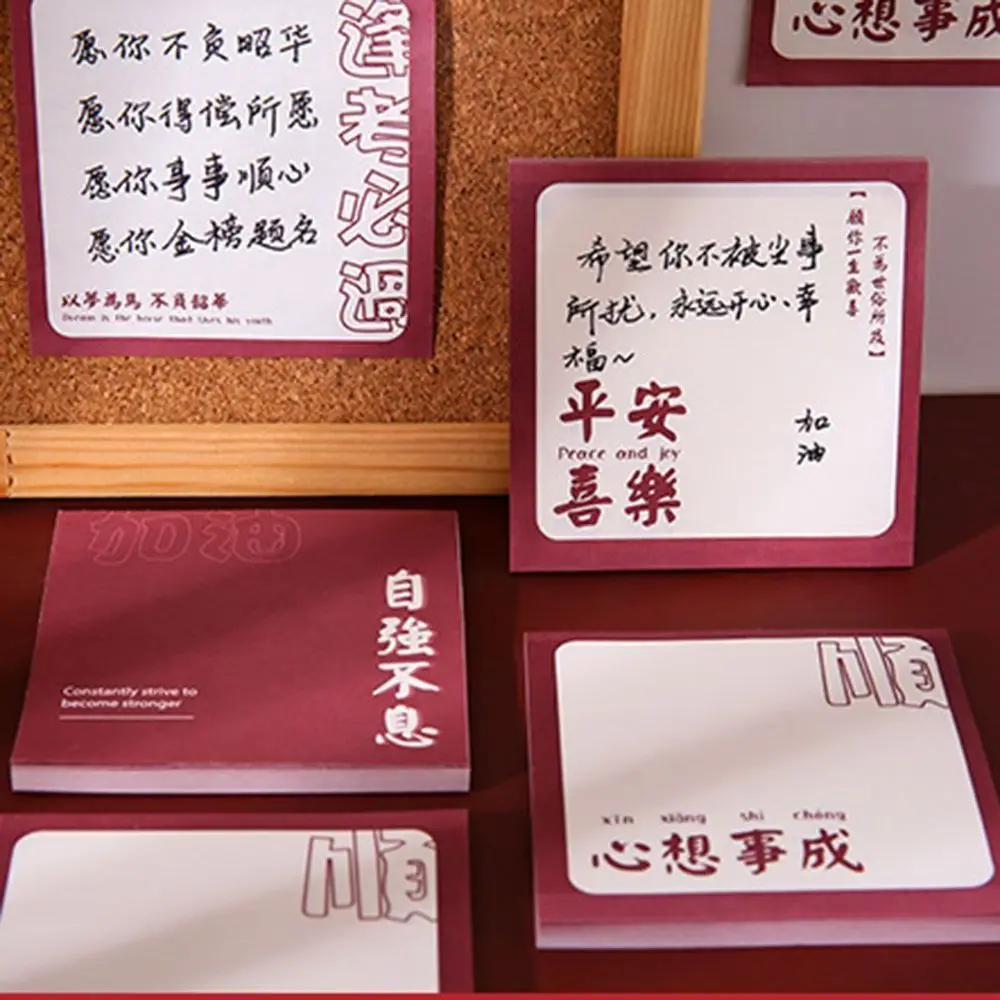 愿你不负昭华
愿你得偿所愿
愿你事事顺心
愿你金榜题名
逢考必過
以梦為馬 不負韶華
心想事成
【願你一生歡喜
不為世俗所及】
希望你不被尘事
所扰，永远开心、幸
福~
平安
Peace and joy
喜樂
加
油
加油
自強不息
Constantly strive to
become stronger
順
xīn xiǎng shì chéng
心想事成
順